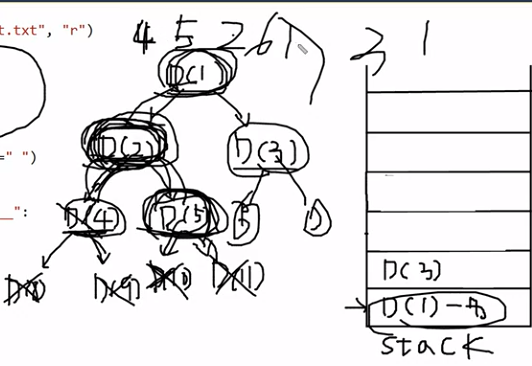 t.txt", "r")
4 5 2 6 7 3 1
D(1)
D(2) D(3)
D(4) D(5) D
D(9) D(11)
=" ")
__":
D(3)
D(1)-
stack